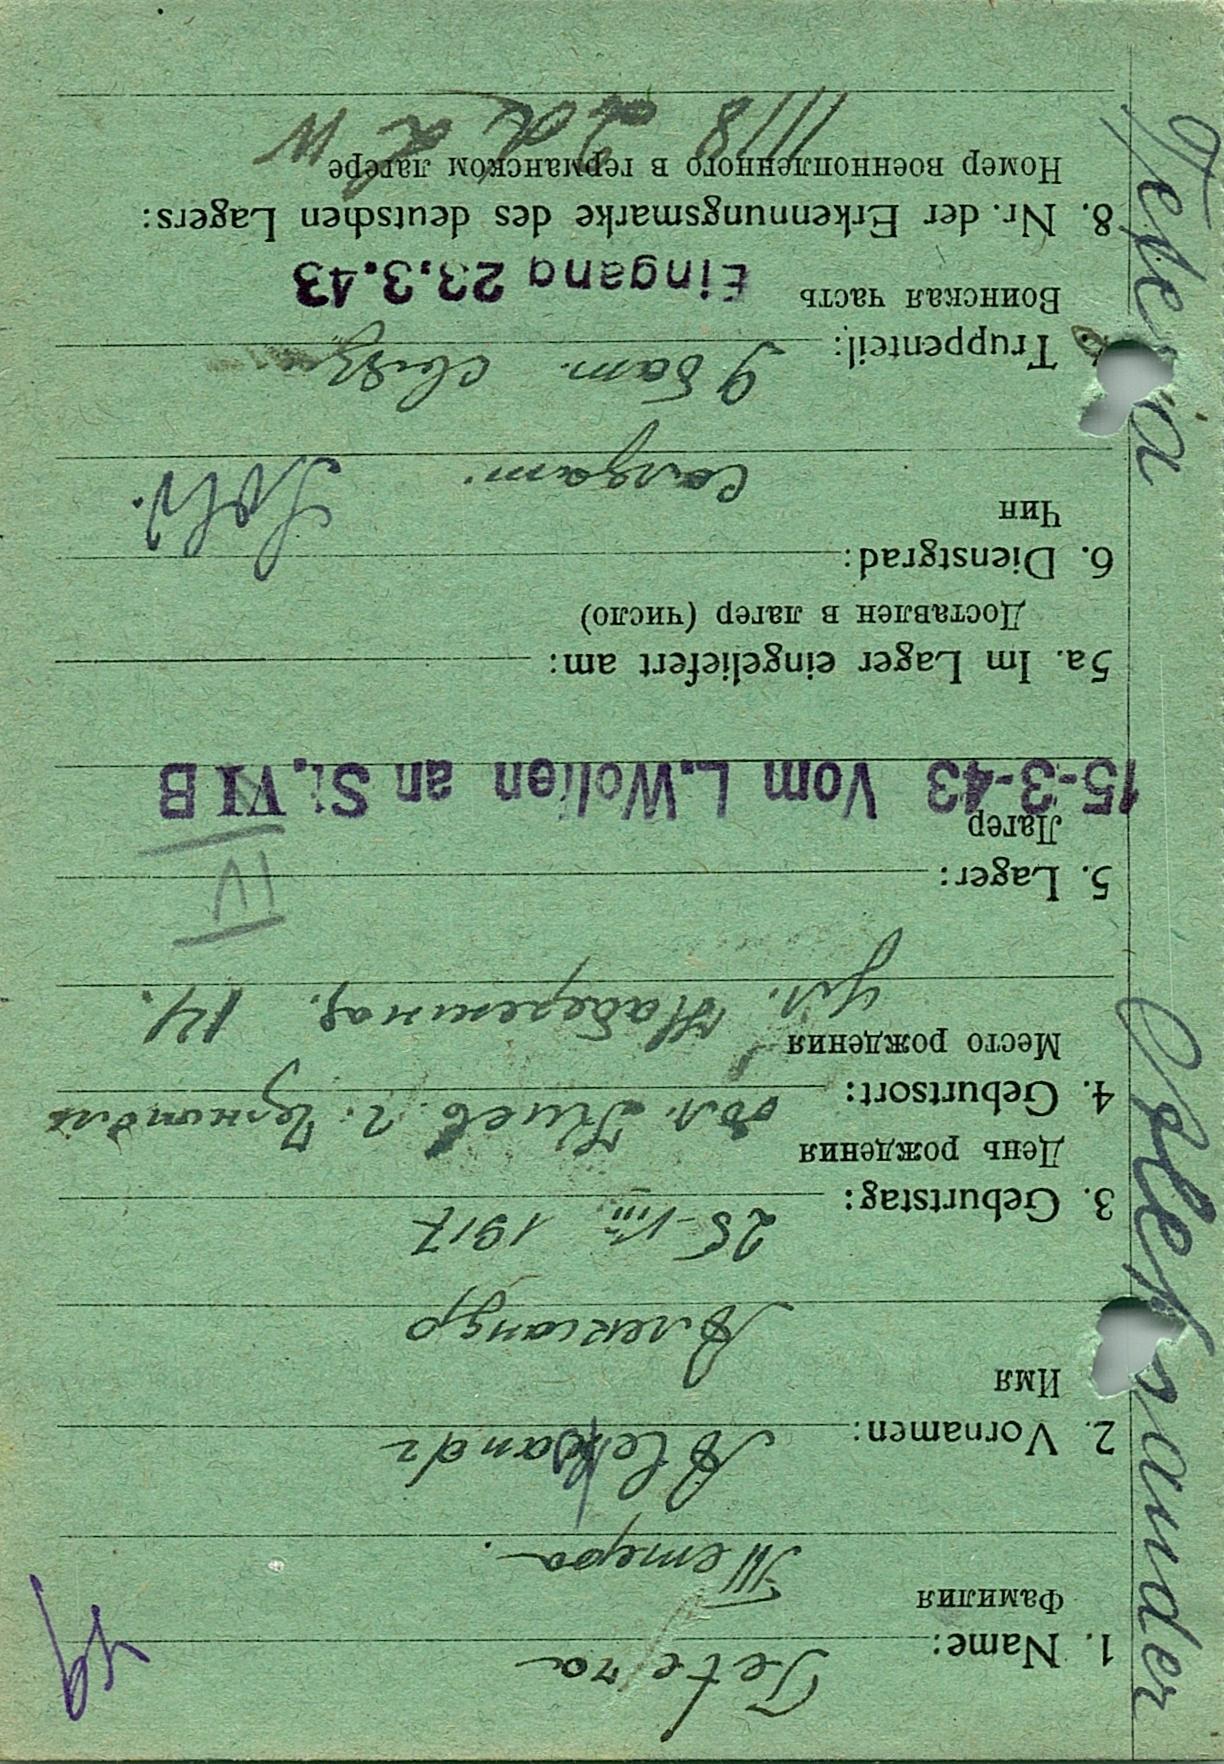 Tetera
1. Name:
Фамилия
Тетера.
Aleksandr
2. Vornamen:
Имя
Александр
25-VIII 1917
3. Geburtstag:
День рождения
обл. Киев г. Чернобыль
4. Geburtsort:
Место рождения
ул. Набережная. 14.
5. Lager:
IV
Лагер
15-3-43 Vom L.Wolien an St.VI B
5a. Im Lager eingeliefert am:
Доставлен в лагер (число)
6. Dienstgrad:
Чин
Sold.
Солдат.
9 бат. связи
Truppenteil:
Воинская часть
Eingang 23.3.43
8. Nr. der Erkennungsmarke des deutschen Lagers:
Номер военнопленного в германском лагере
Tetera Aleksander